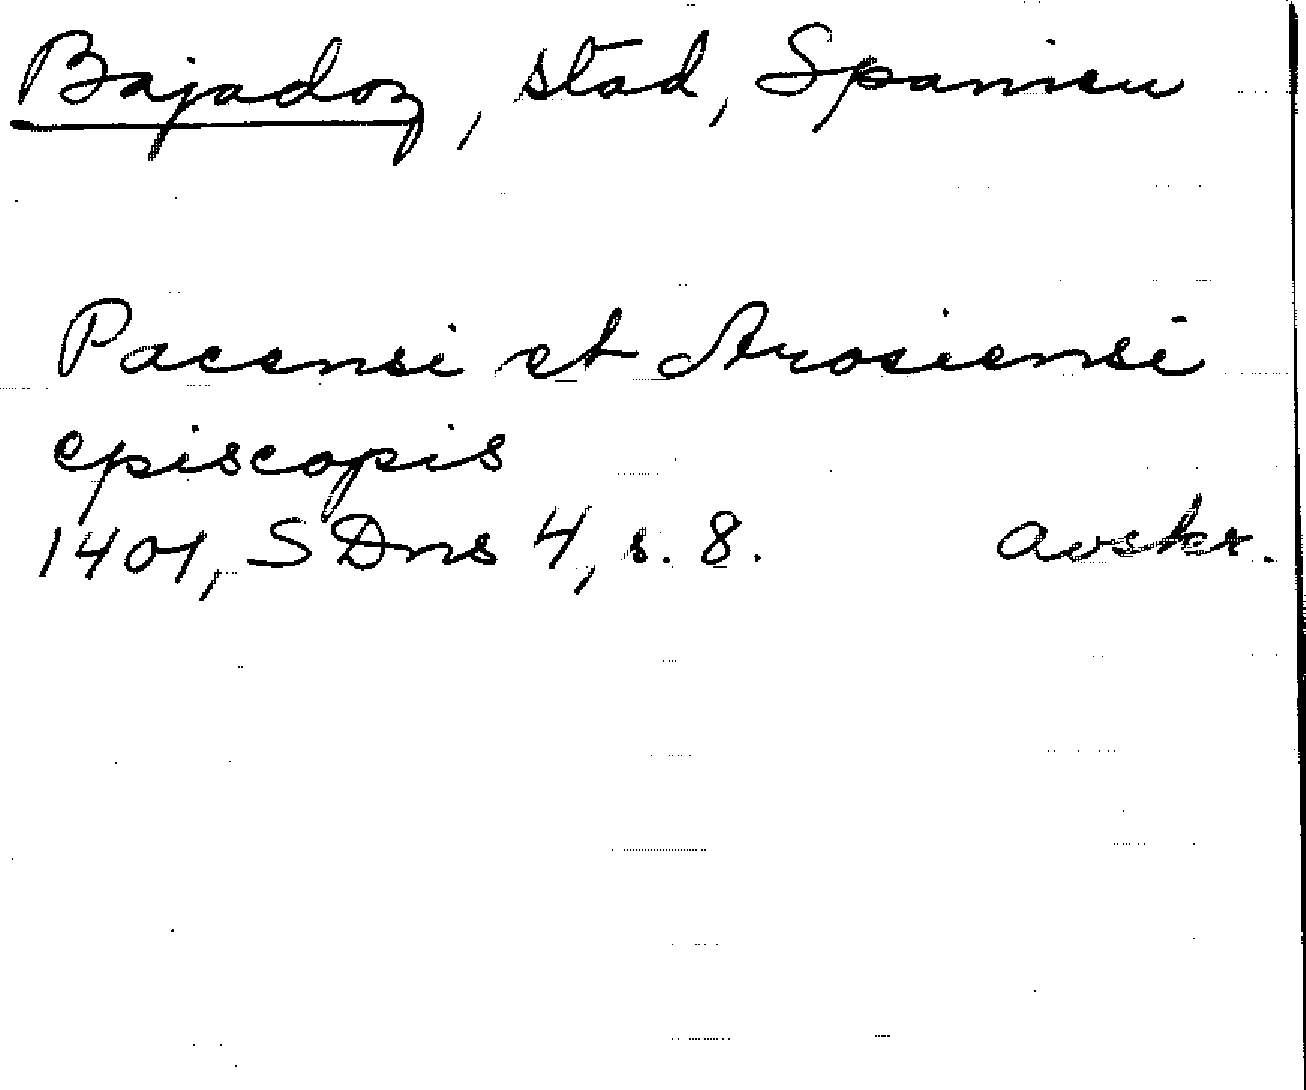 Bajadoz, stad, Spanien
Pacensi et Arosiensi
episcopis
1401, SDns 4, s. 8. avskr.